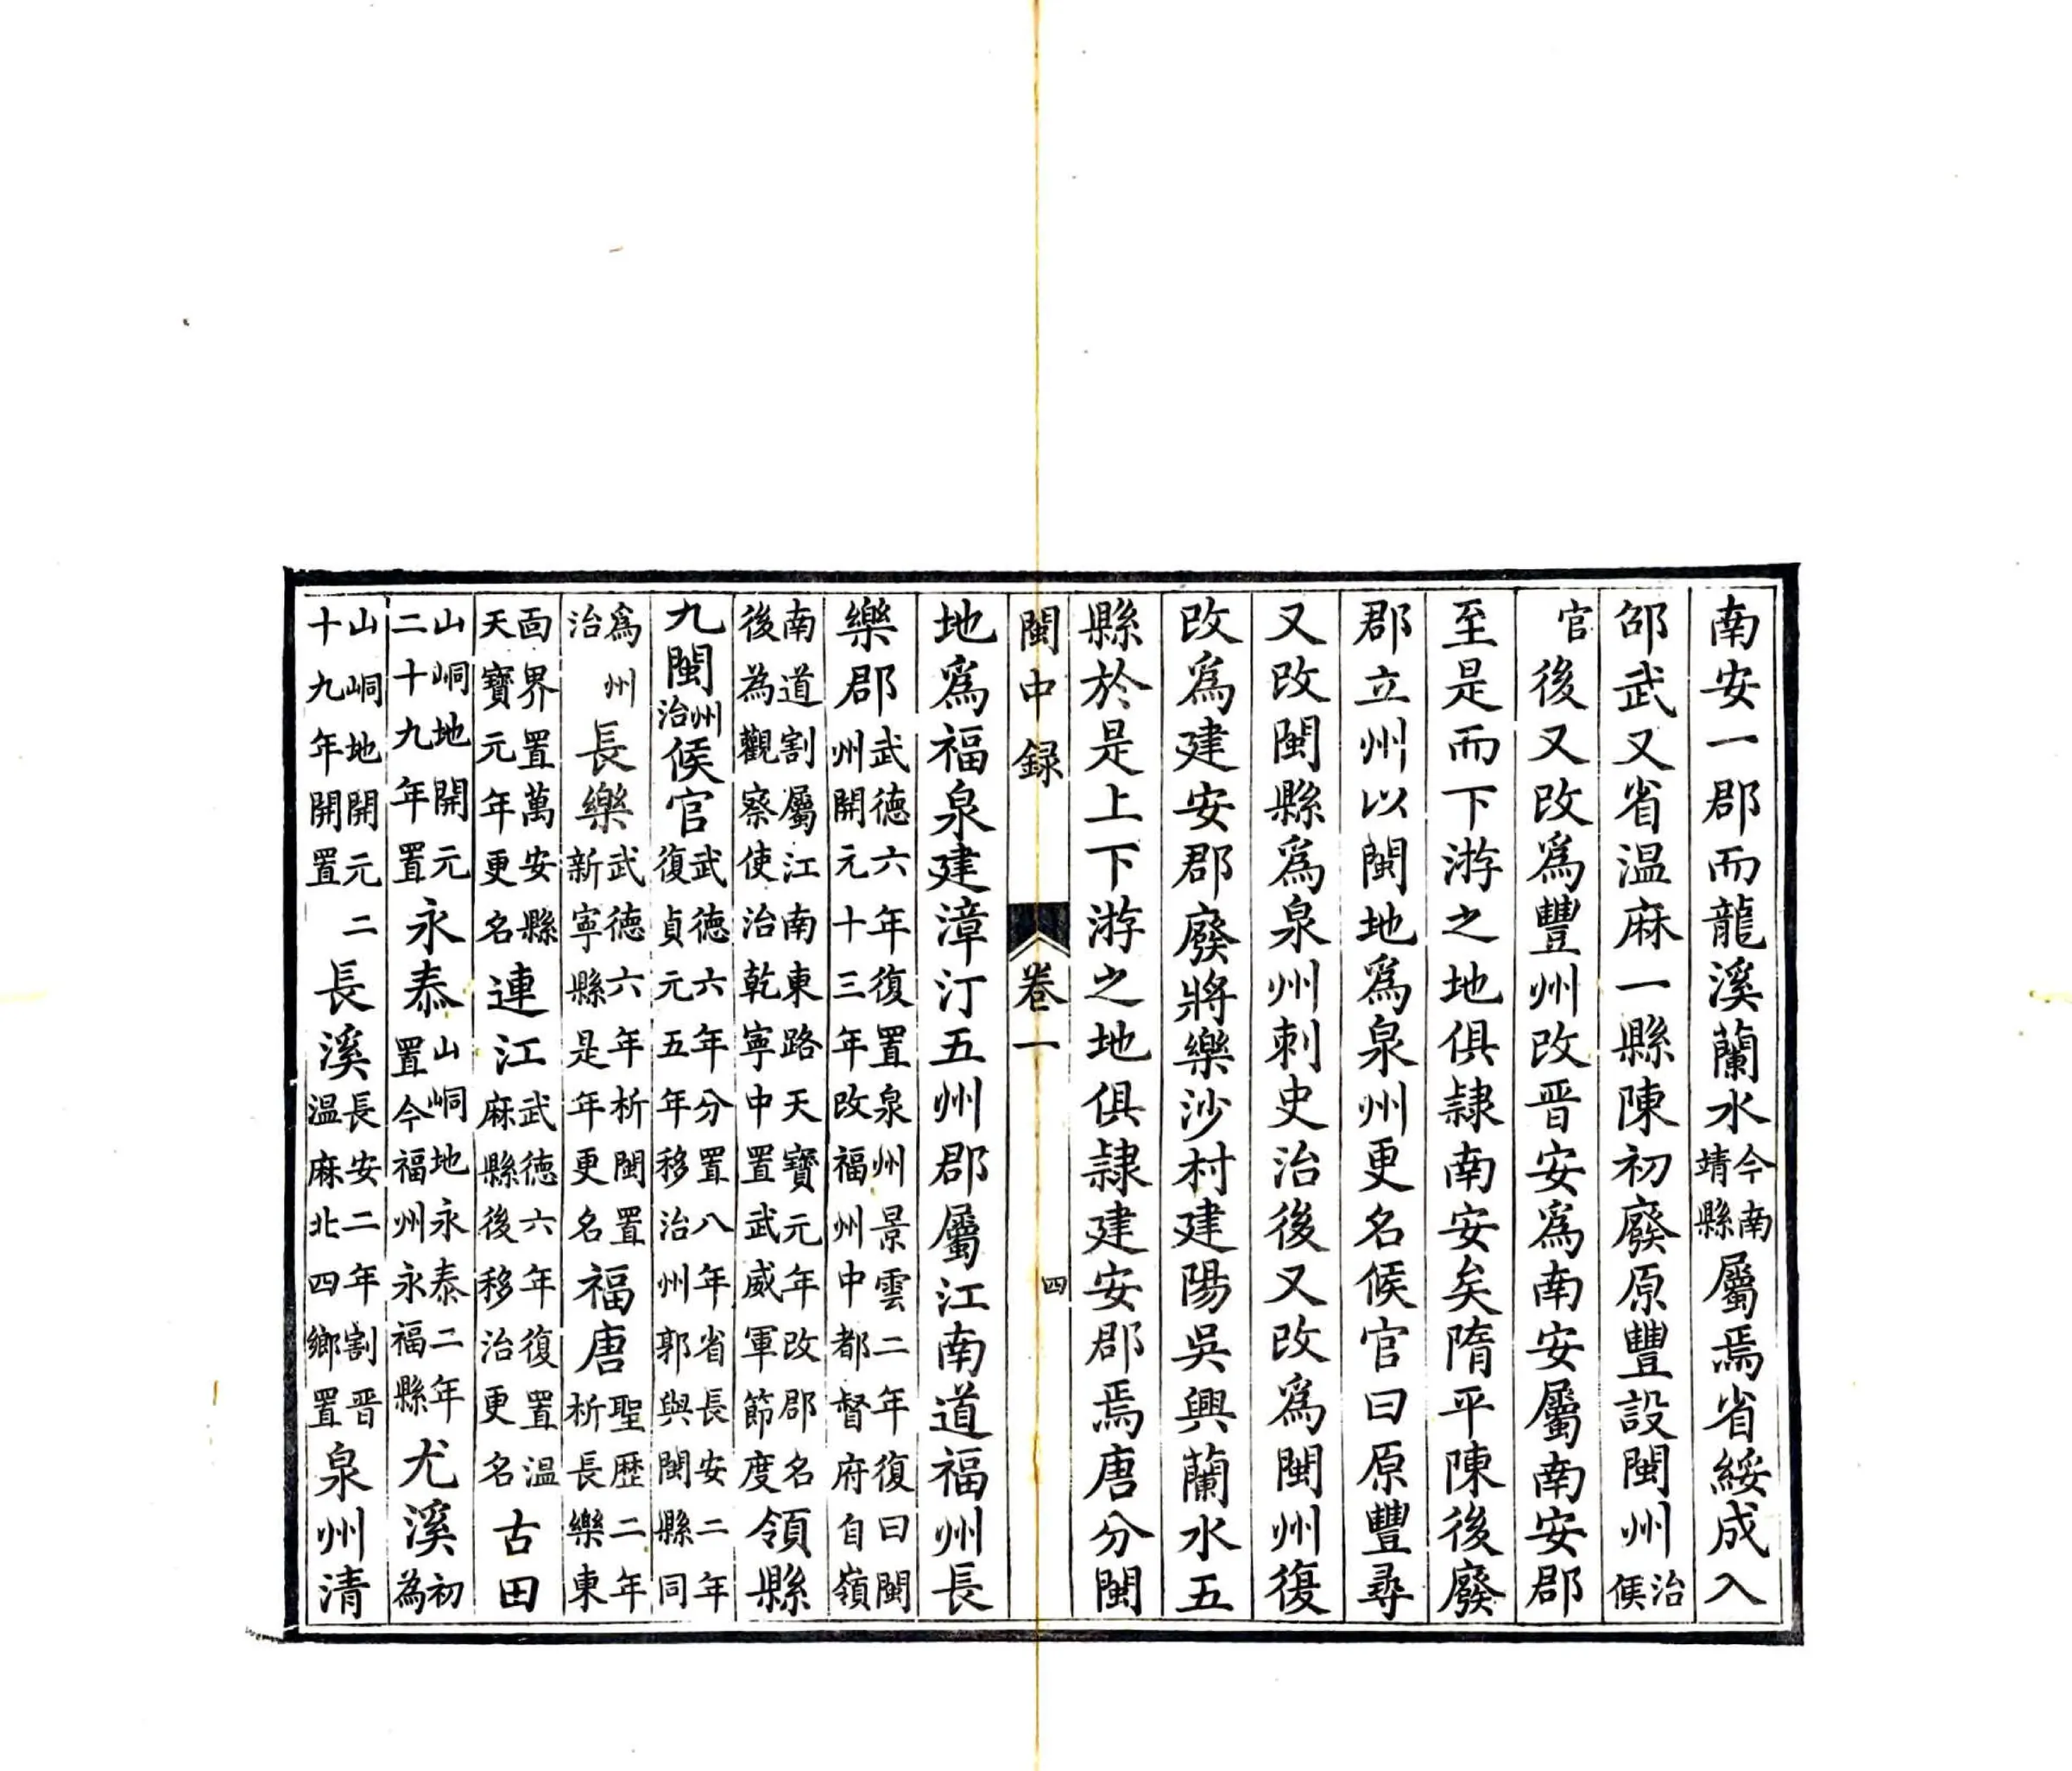 南安一郡而龍溪蘭水今南靖縣屬焉省綏成入
邵武又省温麻一縣陳初廢原豐設閩州治候
官後又改爲豐州改晋安爲南安屬南安郡
至是而下游之地俱隷南安矣隋平陳後廢
郡立州以閩地爲泉州更名候官曰原豐尋
又改閩縣爲泉州刺史治後又改爲閩州復
改爲建安郡廢將樂沙村建陽吳興蘭水五
縣於是上下游之地俱隷建安郡焉唐分閩
閩中録 卷一 四
地爲福泉建漳汀五州郡屬江南道福州長
樂郡武德六年復置泉州景雲二年復曰閩州開元十三年改福州中都督府自嶺
南道割屬江南東路天寶元年改郡名後為觀察使治乾寧中置武威軍節度領縣
九閩州治候官武德六年分置八年省長安二年復貞元五年移治州郭與閩縣同
爲州治長樂武德六年析閩置新寧縣是年更名福唐聖歴二年析長樂東
面界置萬安縣天寶元年更名連江武德六年復置温麻縣後移治更名古田
山峒地開元二十九年置永泰山峒地永泰二年置今福州永福縣尤溪初為
山峒地開元二十九年開置長溪長安二年割晋温麻北四鄉置泉州清